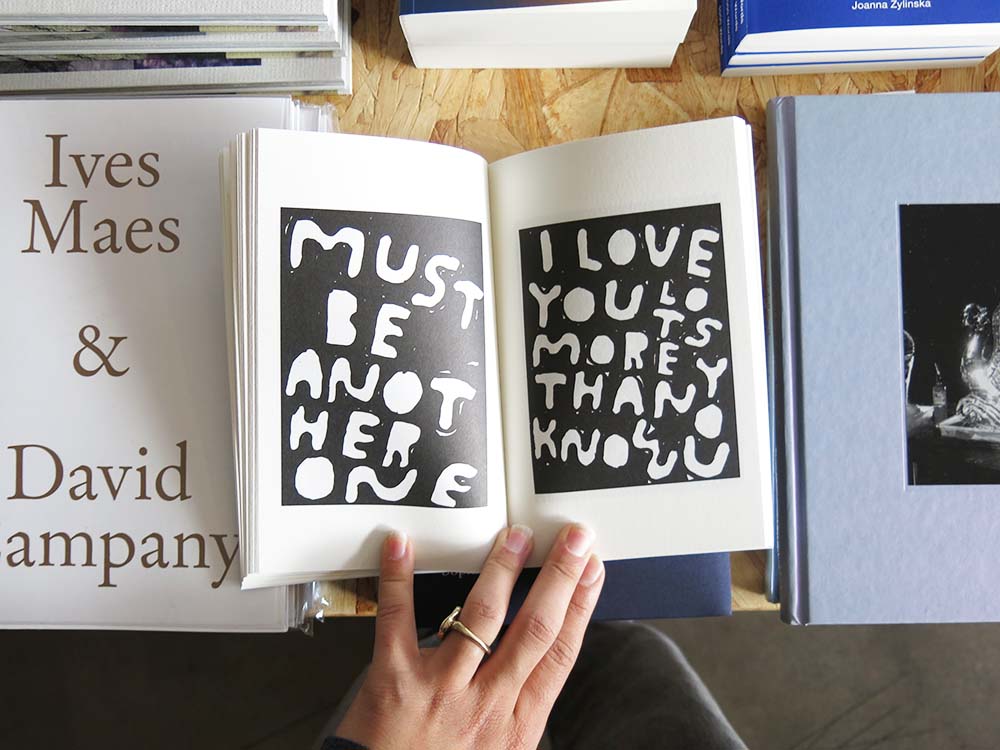 Joanna Zylinska
Ives
Maes
&
David
Campany
MUST
BE
ANOT
HER
ONE
I LOVE
YOU LOTS
MORE
THAN YOU
KNOW